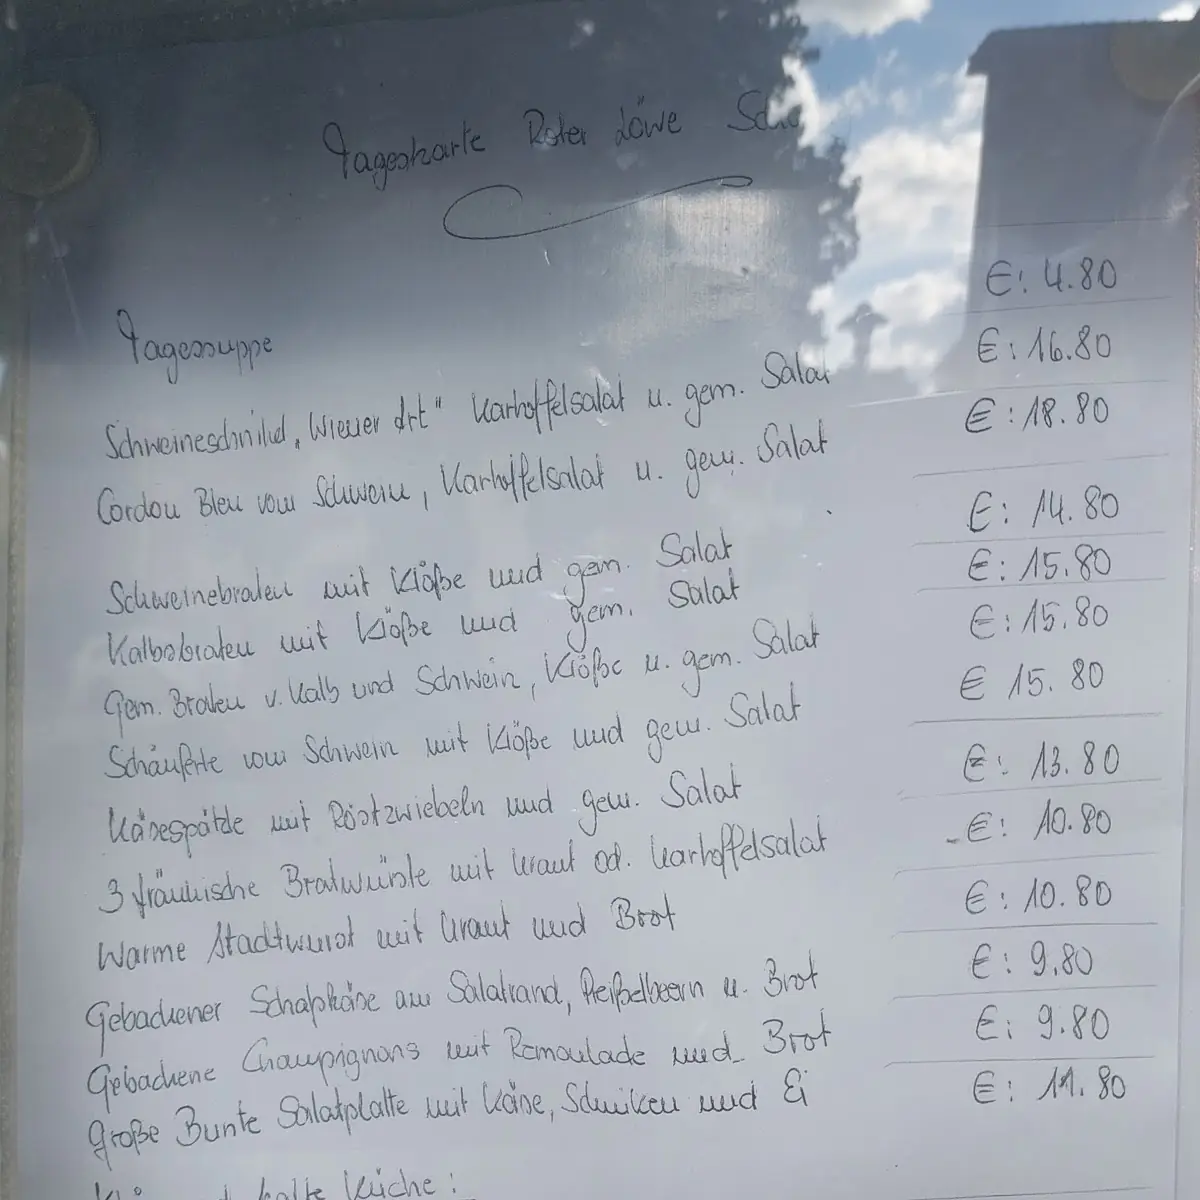 Tageskarte Roter Löwe
Tagessuppe €: 4.80
Schweineschnitzel „Wiener Art" Kartoffelsalat u. gem. Salat €: 16.80
Cordou Bleu vom Schwein, Kartoffelsalat u. gem. Salat €: 18.80
Schweinebraten mit Klöße und gem. Salat €: 14.80
Kalbsbraten mit Klöße und gem. Salat €: 15.80
Gem. Braten v. Kalb und Schwein, Klöße u. gem. Salat €: 15.80
Schäuferle vom Schwein mit Klöße und gem. Salat € 15.80
Käsespätzle mit Röstzwiebeln und gem. Salat €: 13.80
3 fränkische Bratwürste mit Kraut od. Kartoffelsalat €: 10.80
Warme Stadtwurst mit Kraut und Brot €: 10.80
Gebackener Schafskäse am Salatrand, Preißelbeern u. Brot €: 9.80
Gebackene Champignons mit Remoulade und Brot €: 9.80
große Bunte Salatplatte mit Käse, Schinken und Ei €: 11.80
kalte Küche: